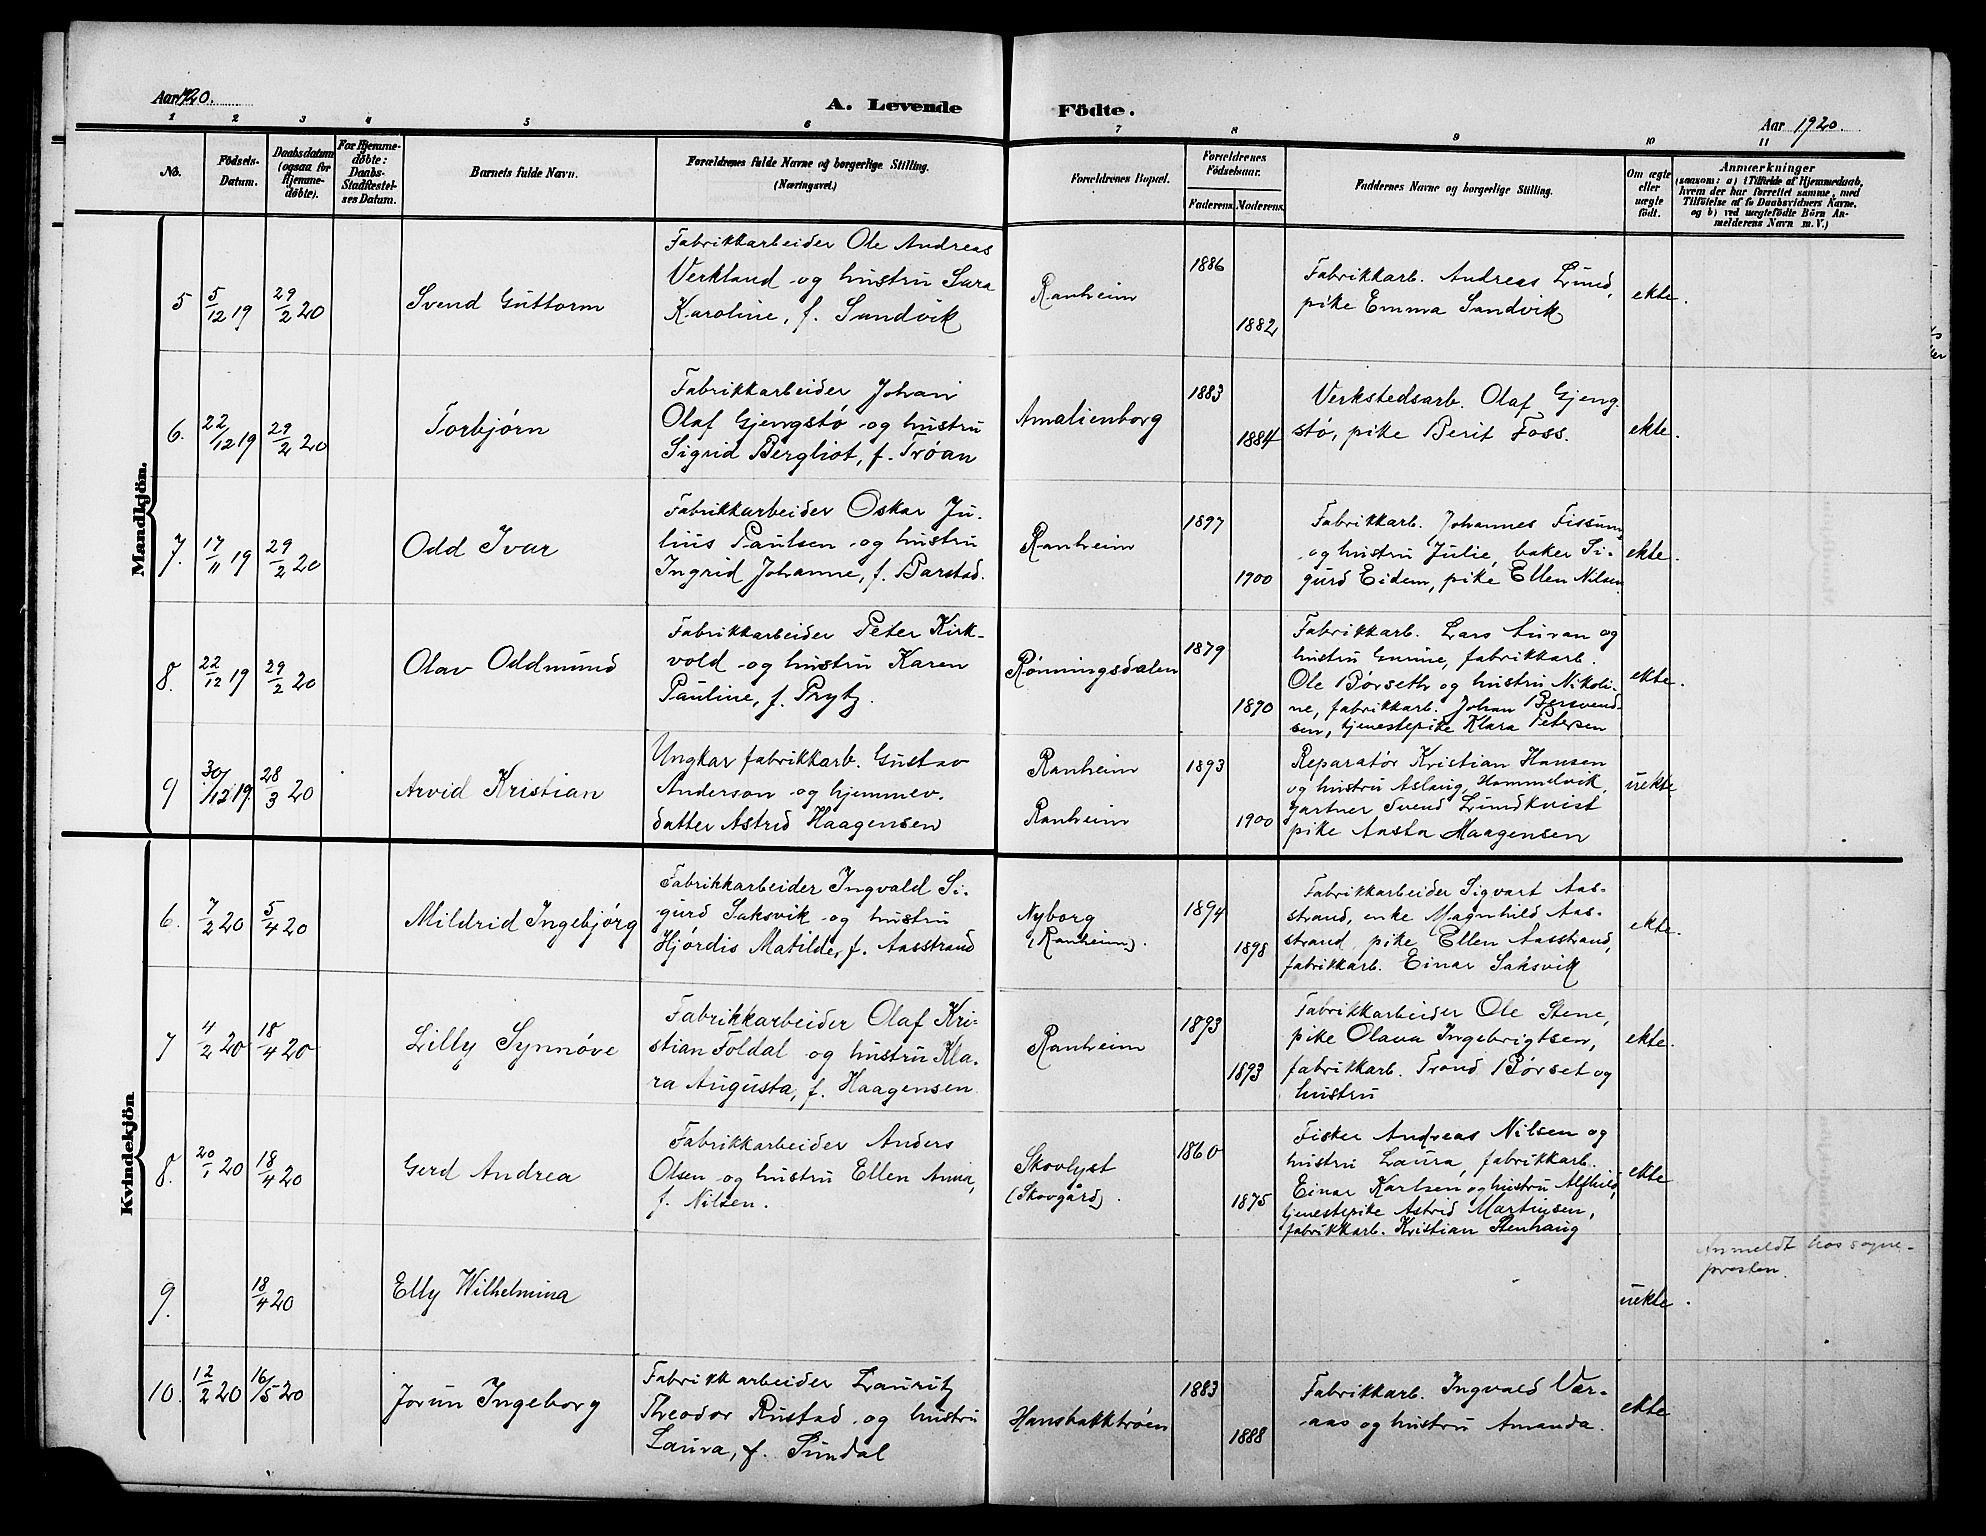 Aar 1920.
A. Levende Födte.
Aar 1920.
1 2 3 4 5 6 7 8 9 10 11
No.
Födsels-
Datum.
Daabsdatum
(ogsaa for
Hjemme-
døbte).
For Hjemme-
døbte:
Daabs-
Stadfæstel-
ses Datum.
Barnets fulde Navn.
Forældrenes fulde Navne og borgerlige Stilling.
(Næringsvei.)
Forældrenes Bopæl.
Forældrenes
Födselsaar.
Faderens.
Moderens.
Faddernes Navne og borgerlige Stilling.
Om ægte
eller
uægte
födt.
Anmærkninger
(saasom: a) i Tilfælde af Hjemmedaab,
hvem der har forrettet samme, med
Tilföielse af to Daabsvidners Navne,
og b) ved uægtefödte Börn An-
melderens Navn m. V.)
Mandkjön.
5
5/12 19
29/2 20
Svend Guttorm
Fabrikkarbeider Ole Andreas
Verkland og hustru Sara
Karoline, f. Sandvik
Ranheim
1886
1882
Fabrikkarb. Andreas Lund,
pike Emma Sandvik
ekte.
6.
22/12 19
29/2 20
Torbjørn
Fabrikkarbeider Johan
Olaf Gjengstø og hustru
Sigrid Bergliot, f. Trøan
Amalienborg
1883
1884
Verkstedsarb. Olaf Gjeng-
stø, pike Berit Foss.
ekte.
7.
17/11 19
29/2 20
Odd Ivar
Fabrikkarbeider Oskar Ju-
lius Paulsen og hustru
Ingrid Johanne, f. Barstad.
Ranheim
1897
1900
Fabrikkarb. Johannes Fissum
og hustru Julie, baker Si-
gurd Eidem, pike Ellen Nilsen
ekte.
8.
22/12 19
29/2 20
Olav Oddmund
Fabrikkarbeider Peter Kirk-
vold og hustru Karen
Pauline, f. Prytz.
Rønningsdalen
1879
1890
Fabrikkarb. Lars Auran og
hustru Gunne, fabrikkarb.
Ole Børseth og hustru Nikoli-
ne, fabrikkarb. Johan Bersvend-
sen, tjenestepike Klara Petersen
ekte.
9
30/12 19.
28/3 20
Arvid Kristian
Ungkar fabrikkarb. Gustav
Anderson og hjemmev.
datter Astrid Haagensen
Ranheim
Ranheim
1893
1900
Reparatør Kristian Hansen
og hustru Aslaug, Hommelvik,
gartner Svend Lundkvist
pike Aasta Haagensen
uekte
Kvindekjön
6.
7/2 20
5/4 20
Mildrid Ingebjørg
Fabrikkarbeider Ingvald Si-
gurd Saksvik og hustru
Hjørdis Matilde, f. Aasstrand
Nyborg
(Ranheim).
1894
1898
Fabrikkarbeider Sigvart Aas-
strand, enke Magnhild Aas-
strand, pike Ellen Aasstrand,
fabrikkarb. Einar Saksvik
ekte.
7
4/2 20
18/4 20
Lilly Synnøve
Fabrikkarbeider Olaf Kri-
stian Foldal og hustru Kla-
ra Augusta, f. Haagensen
Ranheim
1893
1893
Fabrikkarbeider Ole Stene,
pike Olava Ingebrigtsen,
fabrikkarb. Trond Børset og
hustru
ekte.
8.
20/1 20
18/4 20
Gerd Andrea
Fabrikkarbeider Anders
Olsen og hustru Ellen Anna,
f. Nilsen.
Skovlyst
(Skovgård).
1860
1875
Fisker Andreas Nilsen og
hustru Laura, fabrikkarb.
Einar Karlsen og hustru Alfhild,
tjenestepike Astrid Martinsen,
fabrikkarb. Kristian Stenhaug
ekte
9.
18/4 20
Elly Wilhelmina
uekte.
Anmeldt hos sogne-
presten.
10.
12/2 20
16/5 20
Jorun Ingeborg
Fabrikkarbeider Lauritz
Theodor Rustad og hustru
Laura, f. Sundal
Hansbakktrøen
1883
1888
Fabrikkarb. Ingvald Vær-
aas og hustru Amanda.
ekte